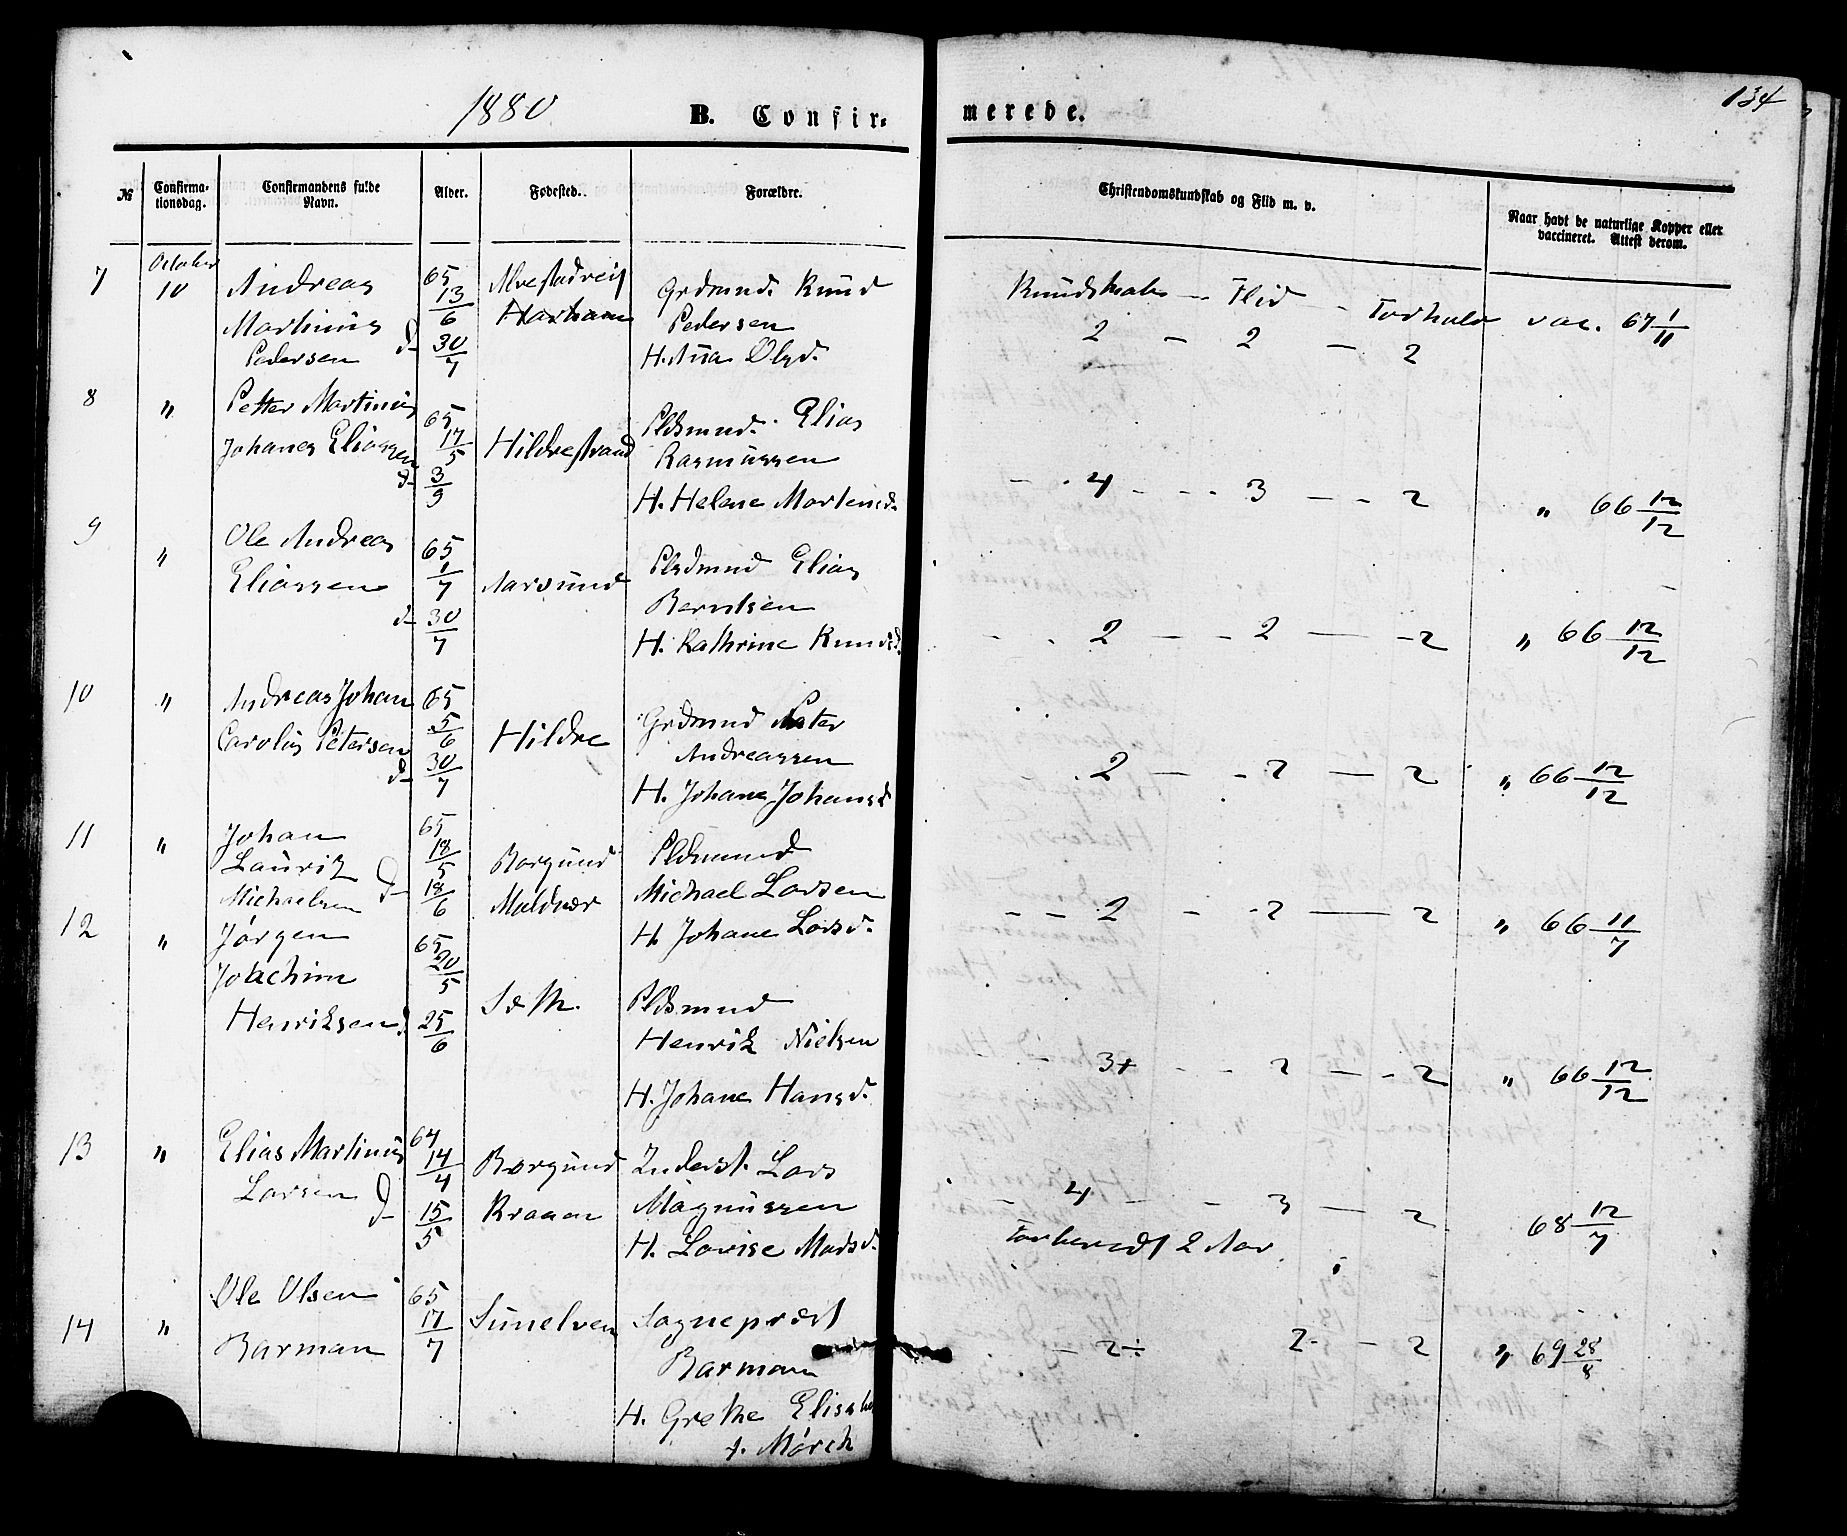 1880 B. Confir- merede. 134
№ Confirma-tionsdag. Confirmandens fulde Navn. Alder. Fødested. Forældre. Christendomskundskab og Flid m. v. Naar havt de naturlige Kopper eller vaccineret. Attest derom.
7 October 10 Andreas 65 13/6
Martinus
Pedersen d- 30/7
Harham
Grdmnd. Knud
Pedersen
H. Ana Olsd.
Kundskab - Flid - Forhold
2 - 2 - 2
vac. 67 1/11
8 " Petter Martinus 65 17/5
Johanes Eliassen
d- 3/9
Hildrestrand
Pldsmnd. Elias
Rasmussen
H. Helene Martinsd.
4 - - 3 - - 2
" 66 12/12
9 " Ole Andreas 65 1/7
Eliassen
d- 30/7
Aarsund
Pldsmnd Elias
Berntsen
H. Kathrine Knudsd.
2 - - 2 - -2
" 66 12/12
10 " Andreas Johan 65 5/6
Carolus Petersen
d- 30/7
Hildre
Grdmnd Peter
Andreassen
H. Johane Johansd
2 - - 2 - 2
" 66 12/12
11 " Johan 65 18/5
Laurik
Michaelsen d- 18/6
Borgund
Moldvær
Pldsmnd
Michael Larsen
H. Johane Larsd.
- - 2 - - 2 - 2
" 66 11/7
12 " Jørgen 65 20/5
Joachim
Henriksen d 25/6
Pldsmnd
Henrik Nielsen
H. Johane Hansd.
- 3+ - - 2 - - 2
" 66 12/12
13 " Elias Martinus 64 14/4
Larsen d- 15/5
Borgund
Kraam
Inderst. Lars
Magnussen
H. Lovise Madsd.
- 4 - - 3 - 2
Forberedt 2 Aar
68 12/7
14 " Ole Olsen 65 17/7
Barman
Sunelven
Sogneprest
Barman
H. Grethe Elisabe
f. Mørch
- 2÷ 2- - 2
" 69 28/8